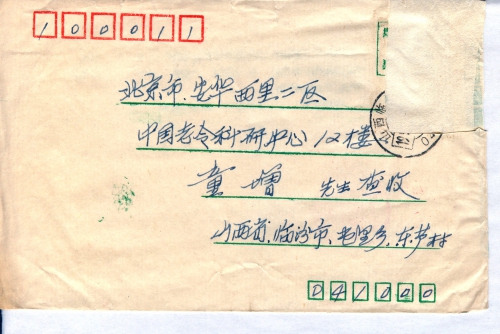 100011
北京市.安华西里二区
中国老令科研中心12楼
童增 先生 查收
山西省.临汾市.屯里乡.东芦村
山西